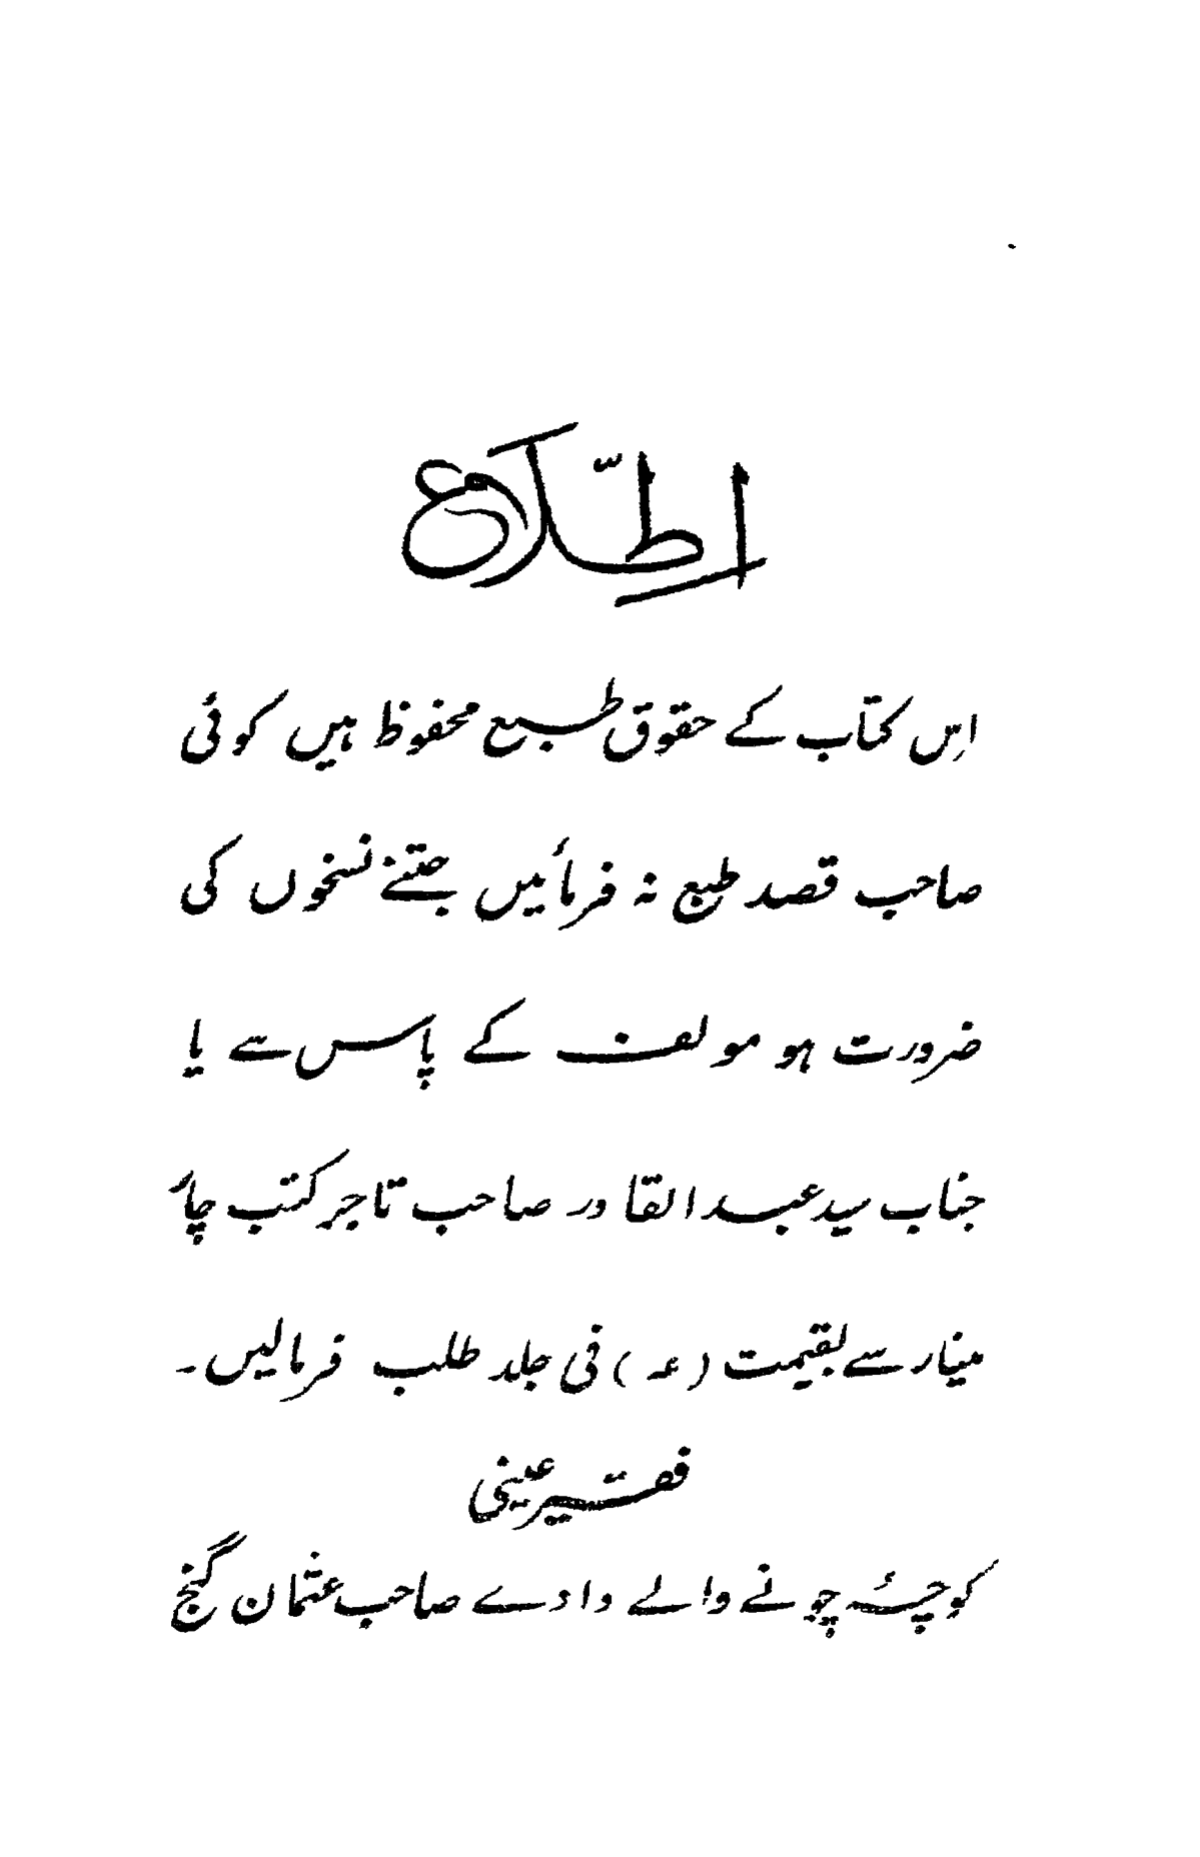 اِطّلاع
اِس کتاب کے حقوق طبع محفوظ ہیں کوئی
صاحب قصد طبع نہ فرمائیں جتنے نسخوں کی
ضرورت ہو مولف کے پاس سے یا
جناب سید عبد القادر صاحب تاجر کتب چار
مینار سے بقیمت (عہ) فی جلد طلب فرمالیں۔
فقیر عینی
کوچۂ چونے والے دادے صاحب عثمان گنج